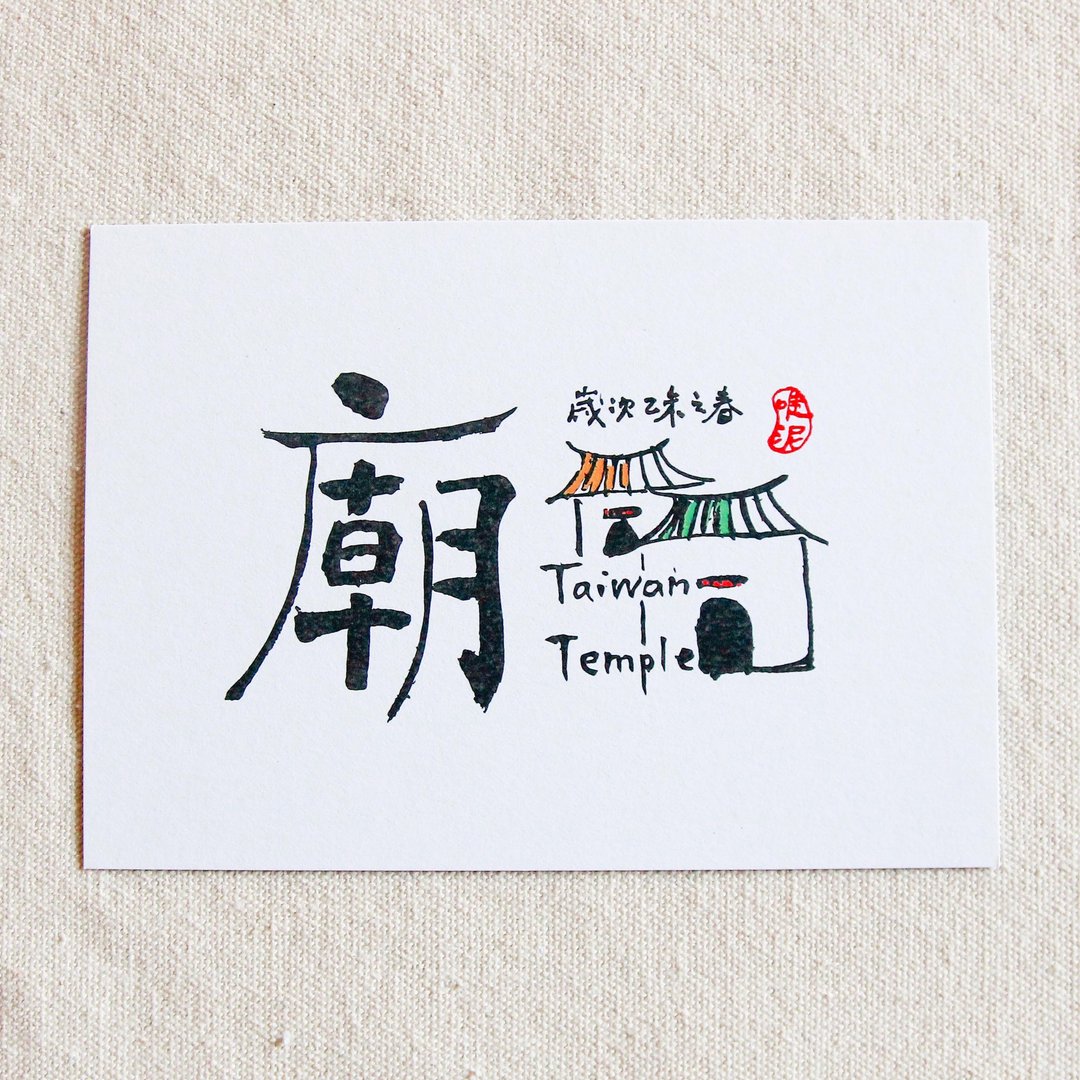 廟
歲次乙未之春
唯泥
Taiwan
Temple